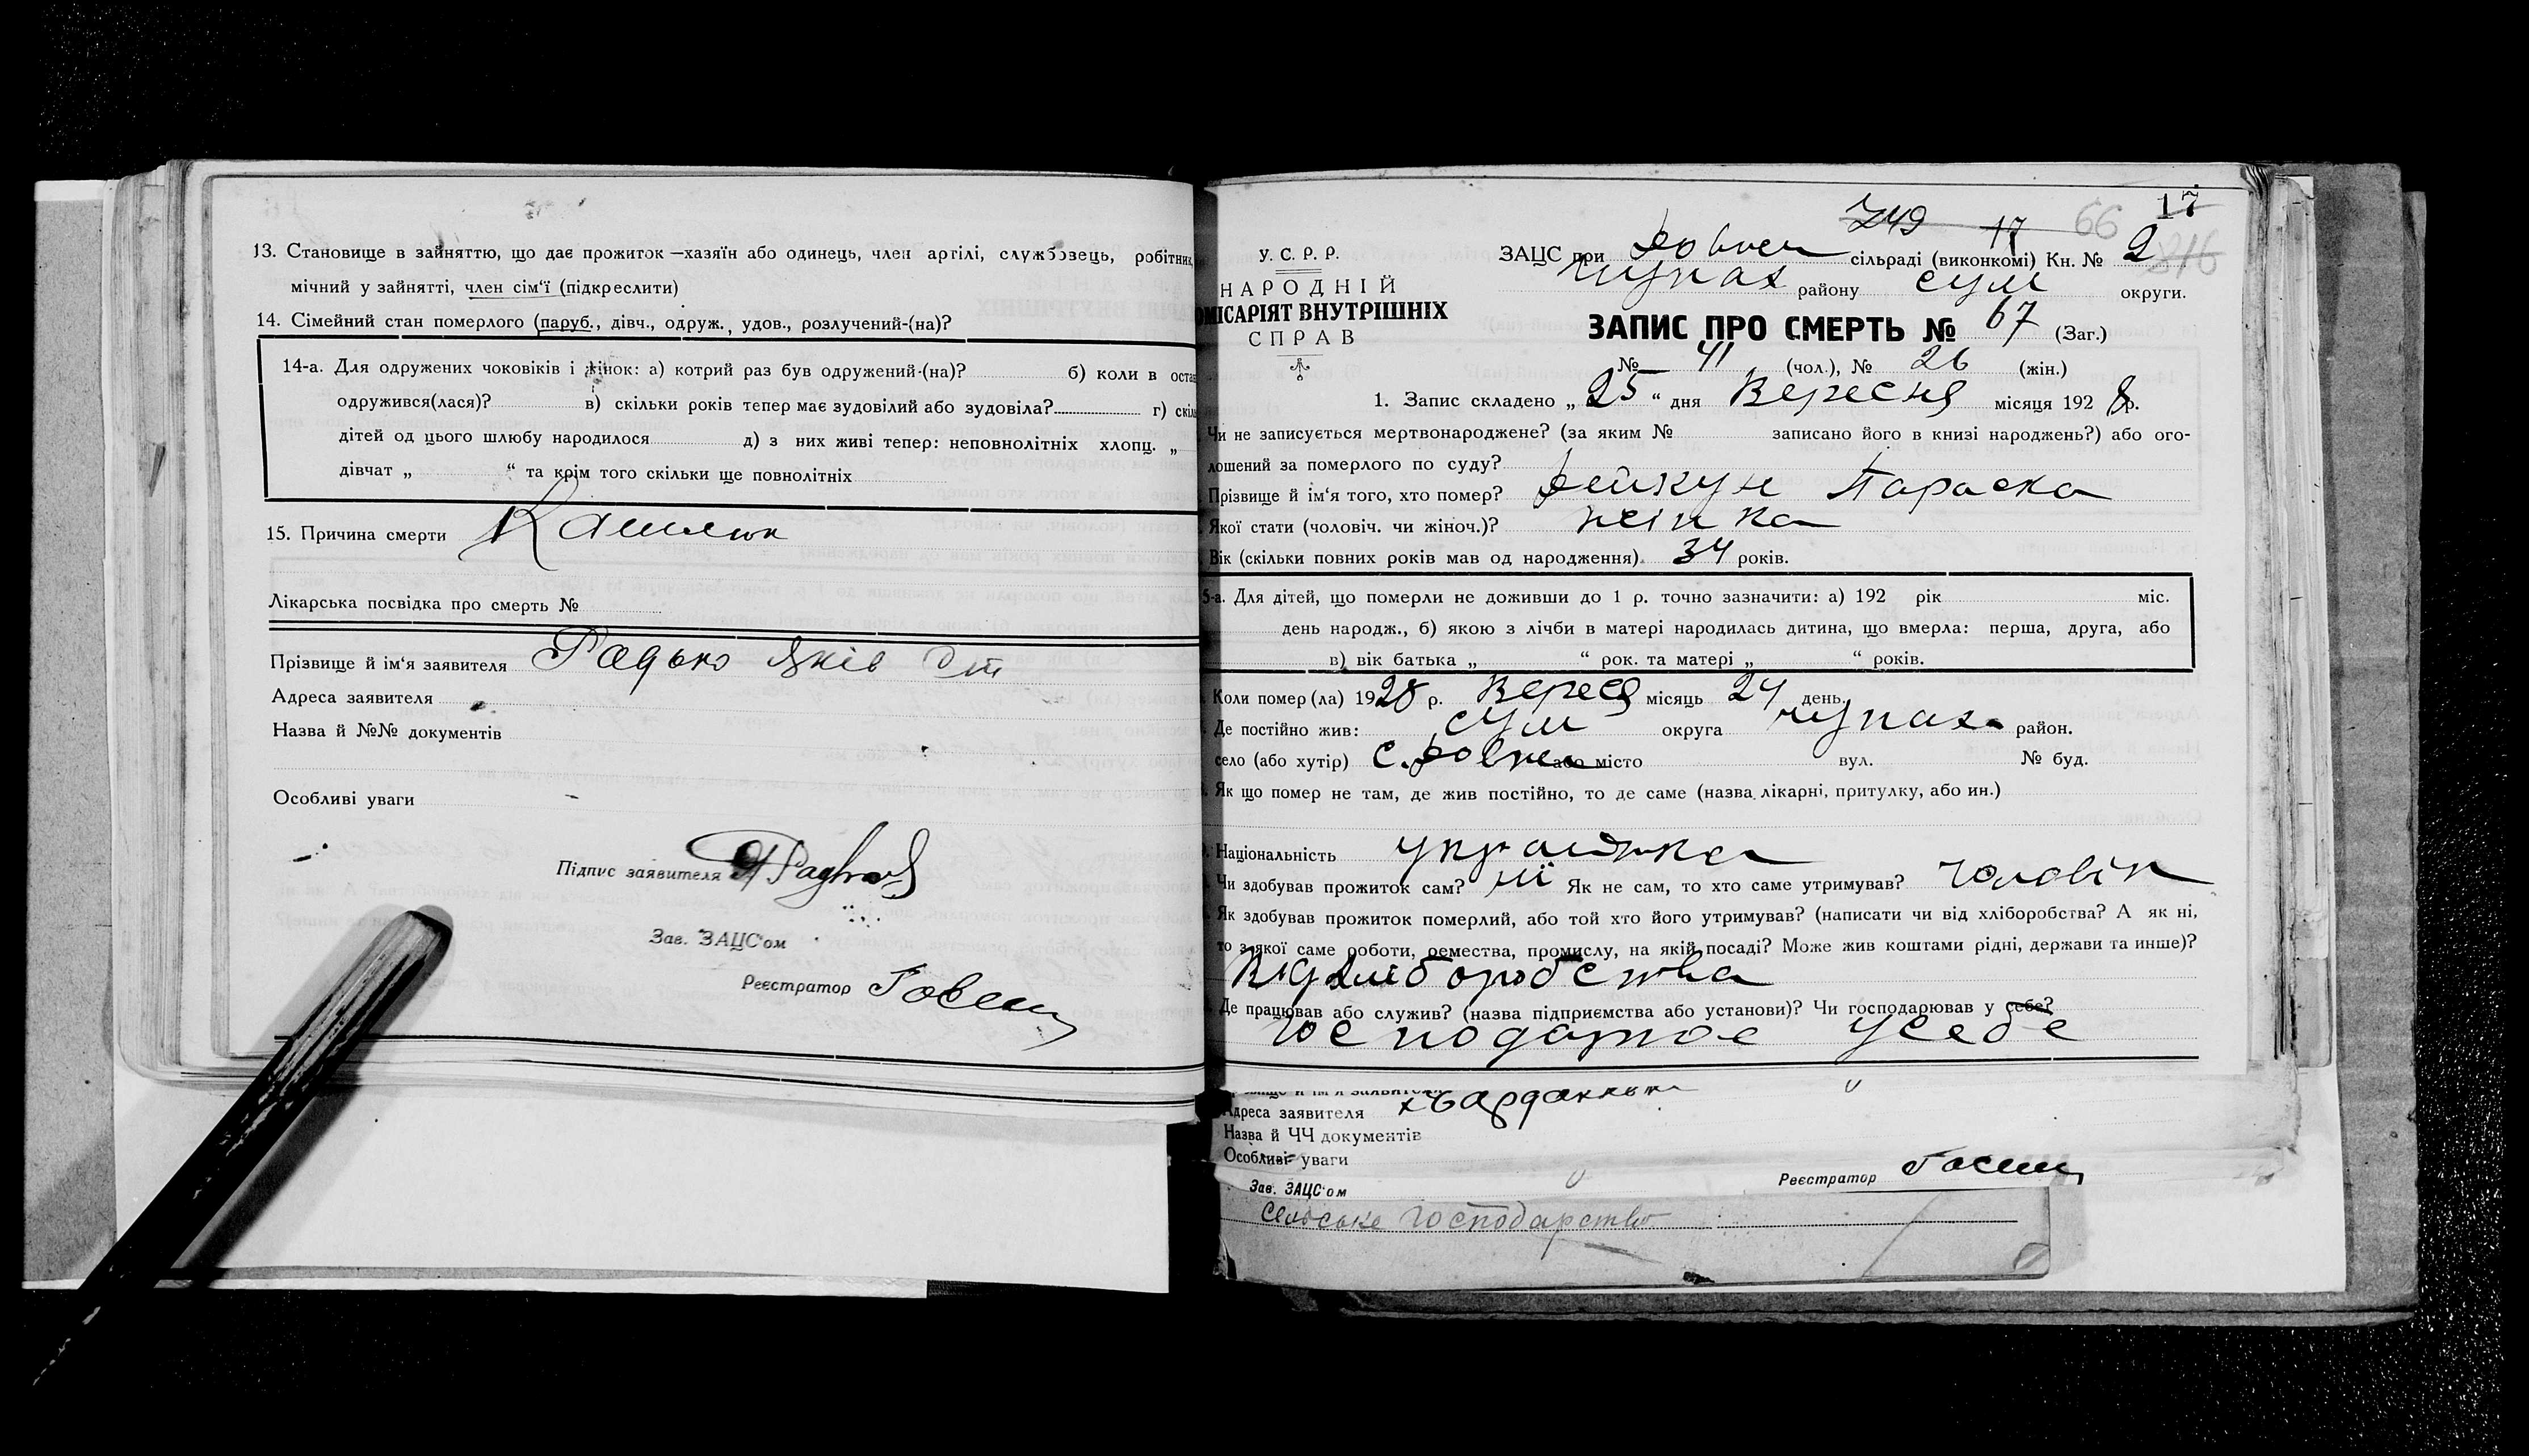 13. Становище в зайняттю, що дає прожиток —хазяїн або одинець, член артілі, службовець, робітник,
мічний у зайнятті, член сім'ї (підкреслити)
14. Сімейний стан померлого (паруб., дівч., одруж., удов., розлучений-(на)?
14-а. Для одружених чоковіків і жінок: а) котрий раз був одружений-(на)? б) коли в оста
одружився(лася)? в) скільки років тепер має зудовілий або зудовіла? г) скіль
дітей од цього шлюбу народилося д) з них живі тепер: неповнолітніх хлопц. „
дівчат „ “ та крім того скільки ще повнолітніх
15. Причина смерти Кашлюк
Лікарська посвідка про смерть №
Прізвище й ім'я заявителя Радько Яків
Адреса заявителя
Назва й №№ документів
Особливі уваги
Підпис заявителя
Зав. ЗАЦС'ом
Реєстратор
17
749 17 66
У. С. Р. Р.
НАРОДНІЙ
ОМІСАРІЯТ ВНУТРІШНІХ
СПРАВ
ЗАЦС при сільраді (виконкомі) Кн. № 2
316
Чупах району Сум округи.
ЗАПИС ПРО СМЕРТЬ № 67 (Заг.)
№ 41 (чол.), № 26 (жін.)
1. Запис складено „ 25 “ дня Вересня місяця 192 8 р.
Чи не записується мертвонароджене? (за яким № записано його в книзі народжень?) або ого-
лошений за померлого по суду?
Прізвище й ім'я того, хто помер? Дейкун Параска
Якої стати (чоловіч. чи жіноч.)? жінка
Вік (скільки повних років мав од народження). 34 років.
5-а. Для дітей, що померли не доживши до 1 р. точно зазначити: а) 192 рік міс.
день народж., б) якою з лічби в матері народилась дитина, що вмерла: перша, друга, або
в) вік батька „ “ рок. та матері „ “ років.
Коли помер (ла) 1928 р. Верес місяць 24 день.
Де постійно жив: Сум округа Чупах район.
село (або хутір) с. або місто вул. № буд.
Як що помер не там, де жив постійно, то де саме (назва лікарні, притулку, або ин.)
Національність українка
Чи здобував прожиток сам? ні Як не сам, то хто саме утримував? чоловік
Як здобував прожиток померлий, або той хто його утримував? (написати чи від хліборобства? А як ні,
то з якої саме роботи, ремества, промислу, на якій посаді? Може жив коштами рідні, держави та инше)?
Від хліборобства
Де працював або служив? (назва підприємства або установи)? Чи господарював у себе?
господарює у себе
Адреса заявителя
Назва й ЧЧ документів
Особливі уваги
Зав. ЗАЦС'ом Реєстратор
Сельське господарство